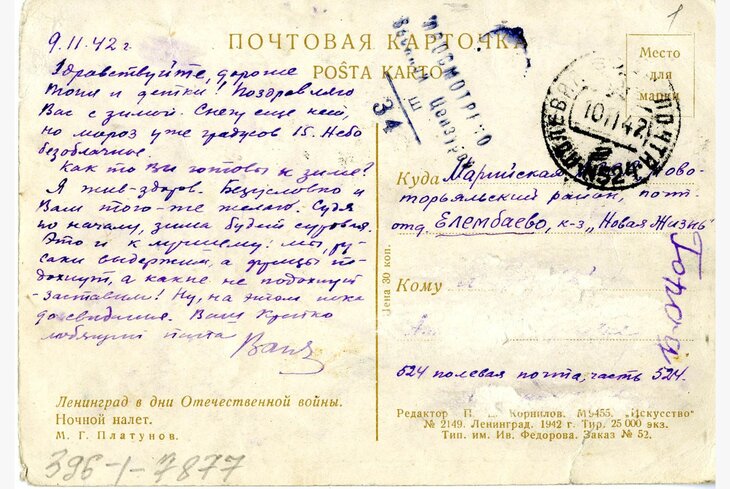 1
9.11.42 г.
ПОЧТОВАЯ КАРТОЧКА
POŜTA KARTO
Место
для
марки
ПРОСМОТРЕНО
Военной
34
ПОЛЕВАЯ ПОЧТА
10 11 42
№524
Здравствуйте, дорогие
Тоня и детки! Поздравляю
Вас с зимой. Снегу еще нет,
но мороз уже градусов 15. Небо
безоблачное.
Как то Вы готовы к зиме?
Я жив-здоров. Безусловно и
Вам того-же желаю. Судя
по началу, зима будет суровая.
Это и к лучшему: мы, ру-
саки выдержим, а фрицы по-
дохнут, а какие не подохнут
- заставим! Ну, на этом пока
до свидания. Ваш крепко
любящий папа
Ваня
Куда Марийская Ново-
торьяльский район, почт.
отд. Елембаево, к-з „Новая Жизнь"
Цена 30 коп.
Кому
524 полевая почта, часть 524.
Ленинград в дни Отечественной войны.
Ночной налет.
М. Г. Платунов.
Редактор Корнилов. М9455. „Искусство"
№ 2149. Ленинград. 1942 г. Тир. 25 000 экз.
Тип. им. Ив. Федорова. Заказ № 52.
396-1-7877